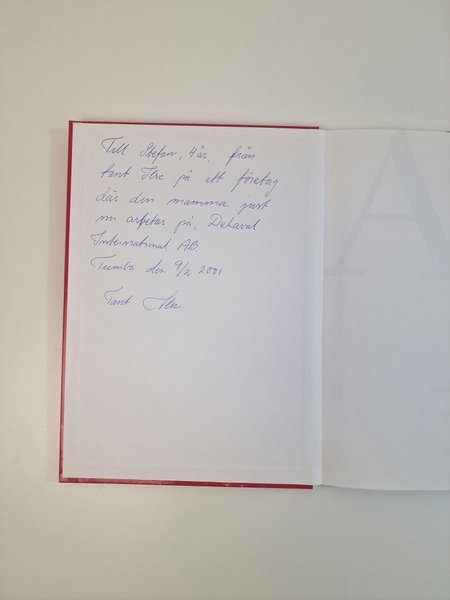 Till Stefan, 4 år, från
tant Ilse på ett företag
där din mamma just
nu arbetar på, DeLaval
International AB.
Tumba den 9/2 2001
Tant Ilse